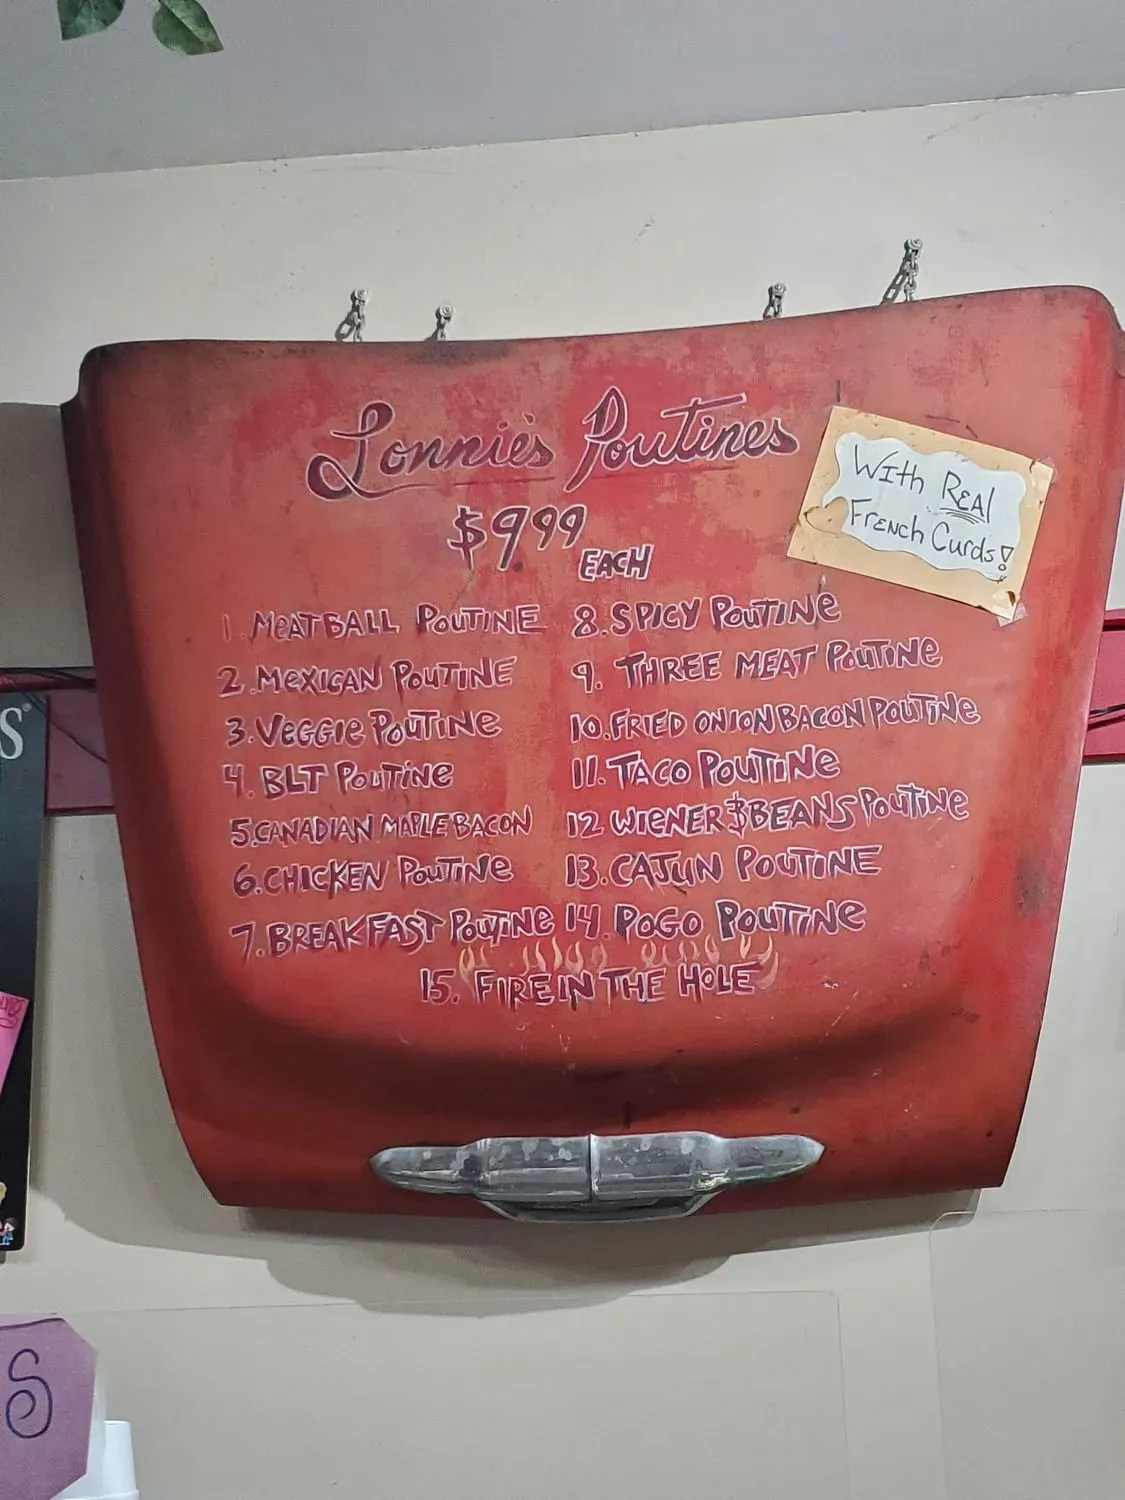 Lonnie's Poutines
$9.99 EACH
With REAl
French Curds!
1. MEATBALL POUTINE
2. MEXICAN POUTINE
3. VEGGIE POUTINE
4. BLT POUTINE
5. CANADIAN MAPLE BACON
6. CHICKEN POUTINE
7. BREAKFAST POUTINE
8. SPICY POUTINE
9. THREE MEAT POUTINE
10. FRIED ONION BACON POUTINE
11. TACO POUTINE
12 WIENER $ BEANS POUTINE
13. CAJUN POUTINE
14. POGO POUTINE
15. FIRE IN THE HOLE
S
S